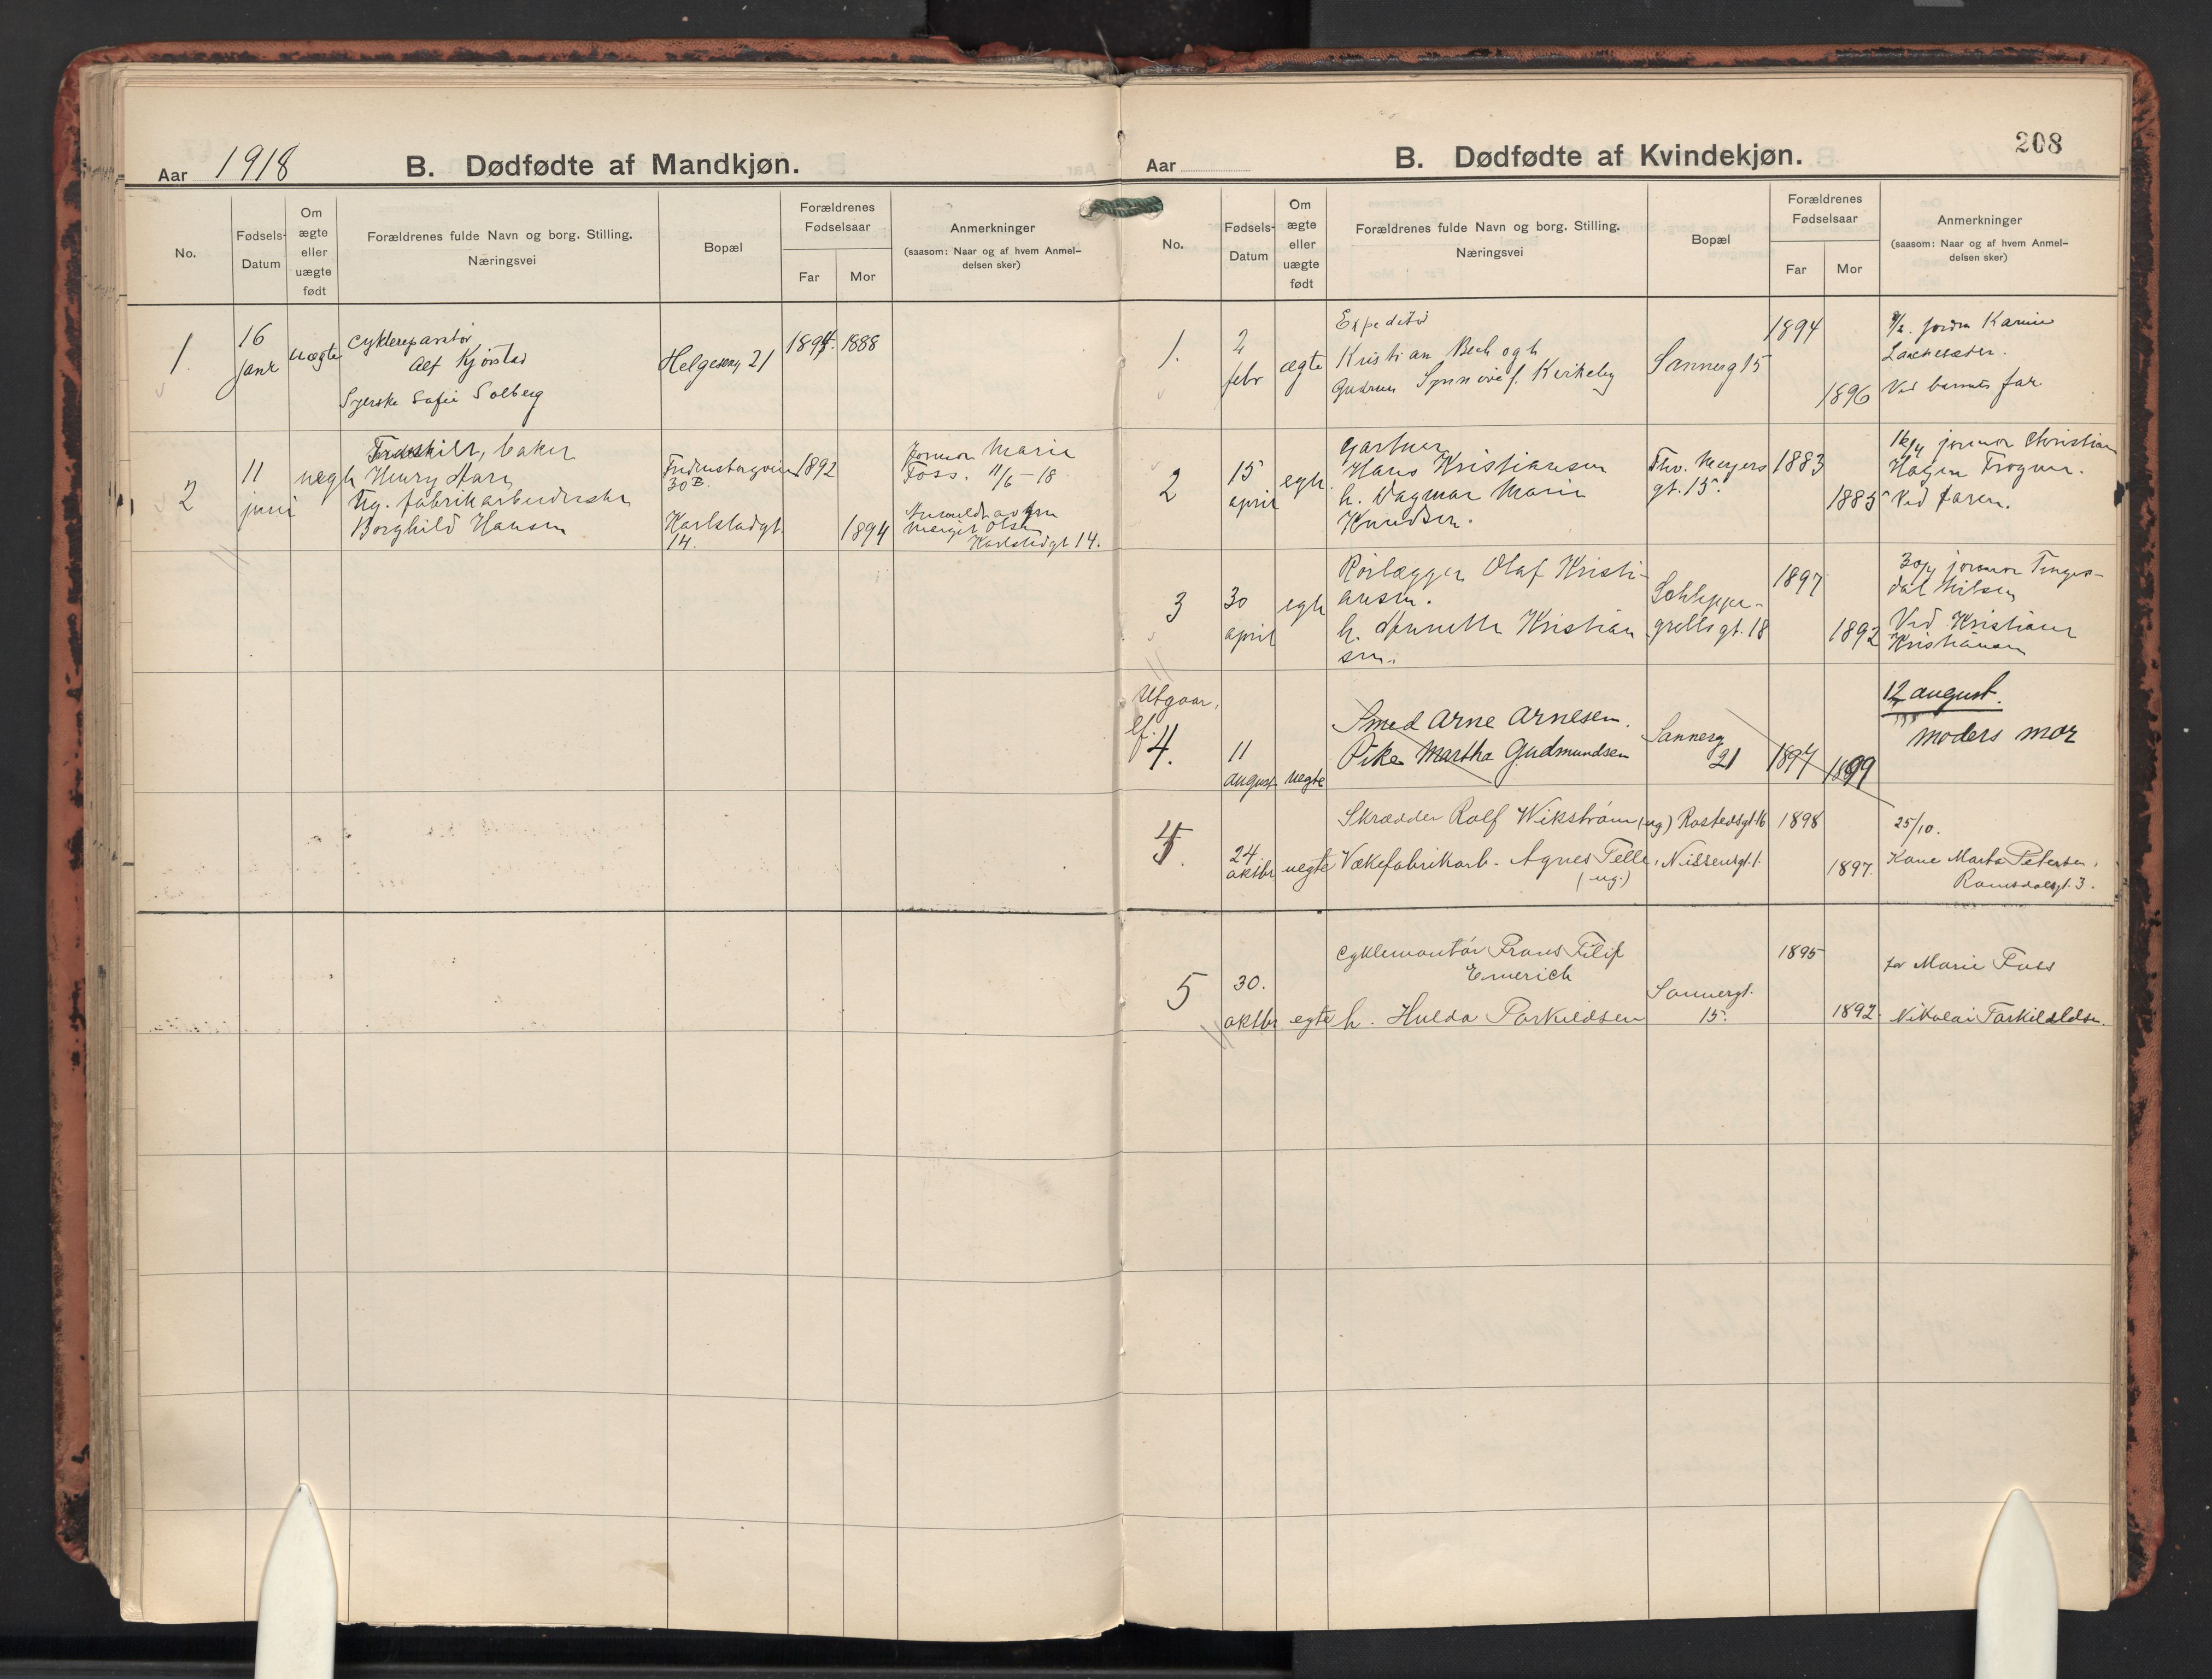 Aar 1918
B. Dødfødte af Mandkjøn.
No.
Fødsels-
Datum
Om
ægte
eller
uægte
født
Forældrenes fulde Navn og borg. Stilling.
Næringsvei
Bopæl
Forældrenes
Fødselsaar
Far
Mor
Anmerkninger
(saasom: Naar og af hvem Anmel-
delsen sker)
1.
16
janr
uægte
Cyklereparatør
Alf Kjørstad
Syerske Sofie Solberg
Helgesens 21
1894.
1888
2
11
juni
uegte
Fraskilt, baker
Henry Aas,
Ug. fabrikarbeiderske
Borghild Hansen
30B.
Karlstadgt.
14.
1892
1894
Jormor Marie
Foss. 11/6-18
Anmeldt av fru
Olsen
Karlstadgt 14.
208
Aar
B. Dødfødte af Kvindekjøn.
No.
Fødsels-
Datum
Om
ægte
eller
uægte
født
Forældrenes fulde Navn og borg. Stilling.
Næringsvei
Bopæl
Forældrenes
Fødselsaar
Far
Mor
Anmerkninger
(saasom: Naar og af hvem Anmel-
delsen sker)
1.
2
febr
ægte
Expeditør
Kristian Bech og h
Gudrun Synnøve f. Kirkeby
Sannerg 15
1894
1896
Jordm Karine
Ved barnets far
2
15
april
egte
Gartner
Hans Kristiansen
h. Dagmar Marie
Knudsen.
Thv. Meyers
gt. 15.
1883
1885
16/4 jormor Christian
Hagen Frogner.
Ved faren.
3
30
april
egte
Rørlægger Olaf Kristi-
ansen.
h. Annette Kristian
sen.
Schleppe-
grellsgt. 18
1897
1892
30/4 jormor Tinges-
dal Nilsen
Ved Kristiane
Kristiansen
Utgaar,
4.
11
august
uegte
Smed Arne Arnesen.
Pike Martha Gudmundsen
Sannerg
21
1897
1899
12 august.
moders mor
4.
24
oktbr
uegte
Skrædder Rolf Wikstrøm (ug)
Vækefabrikarb. Agnes Telle,
(ug.)
Rostedsgt 16
Nissensgt. 1.
1898
1897.
25/10.
Kone Marta Petersen,
Ramsdalsgt. 3.
5
30.
oktbr
egte
Cyklemontør Frans Filip
Emerich
h. Hulda Torkildsen
Sannergt.
15.
1895
1892.
for Marie Foss
Nikolai Torkildsen.